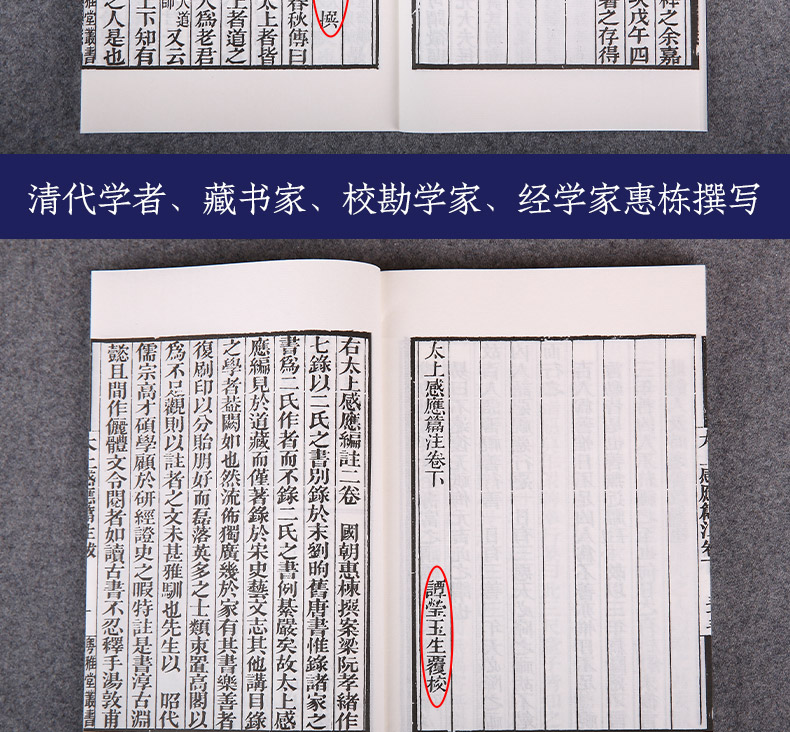 之余嘉
戊午四
著之存得
撰
春秋傳曰
太上者皆
上者道之
人為老君
人道
師
又云
上下知有
之人是也
雅堂叢書
清代学者、藏书家、校勘学家、经学家惠栋撰写
太上感應篇注卷下
譚瑩玉生覆校
右太上感應編註二卷　國朝惠棟撰案梁阮孝緒作
七錄以二氏之書別錄於末劉昫舊唐書惟錄諸家之
書為二氏作者而不錄二氏之書例綦嚴矣故太上感
應編見於道藏而僅著錄於宋史藝文志其他講目錄
之學者葢闕如也然流佈獨廣幾於家有其書樂善者
復刷印以分貽朋好而磊落英多之士類束置高閣以
為不足觀則以註者之文未甚雅馴也先生以　昭代
儒宗高才碩學顧於研經證史之暇特註是書淳古淵
懿且間作儷體文令閱者如讀古書不忍釋手湯敦甫
上感應篇注跋
一
粵雅堂叢書